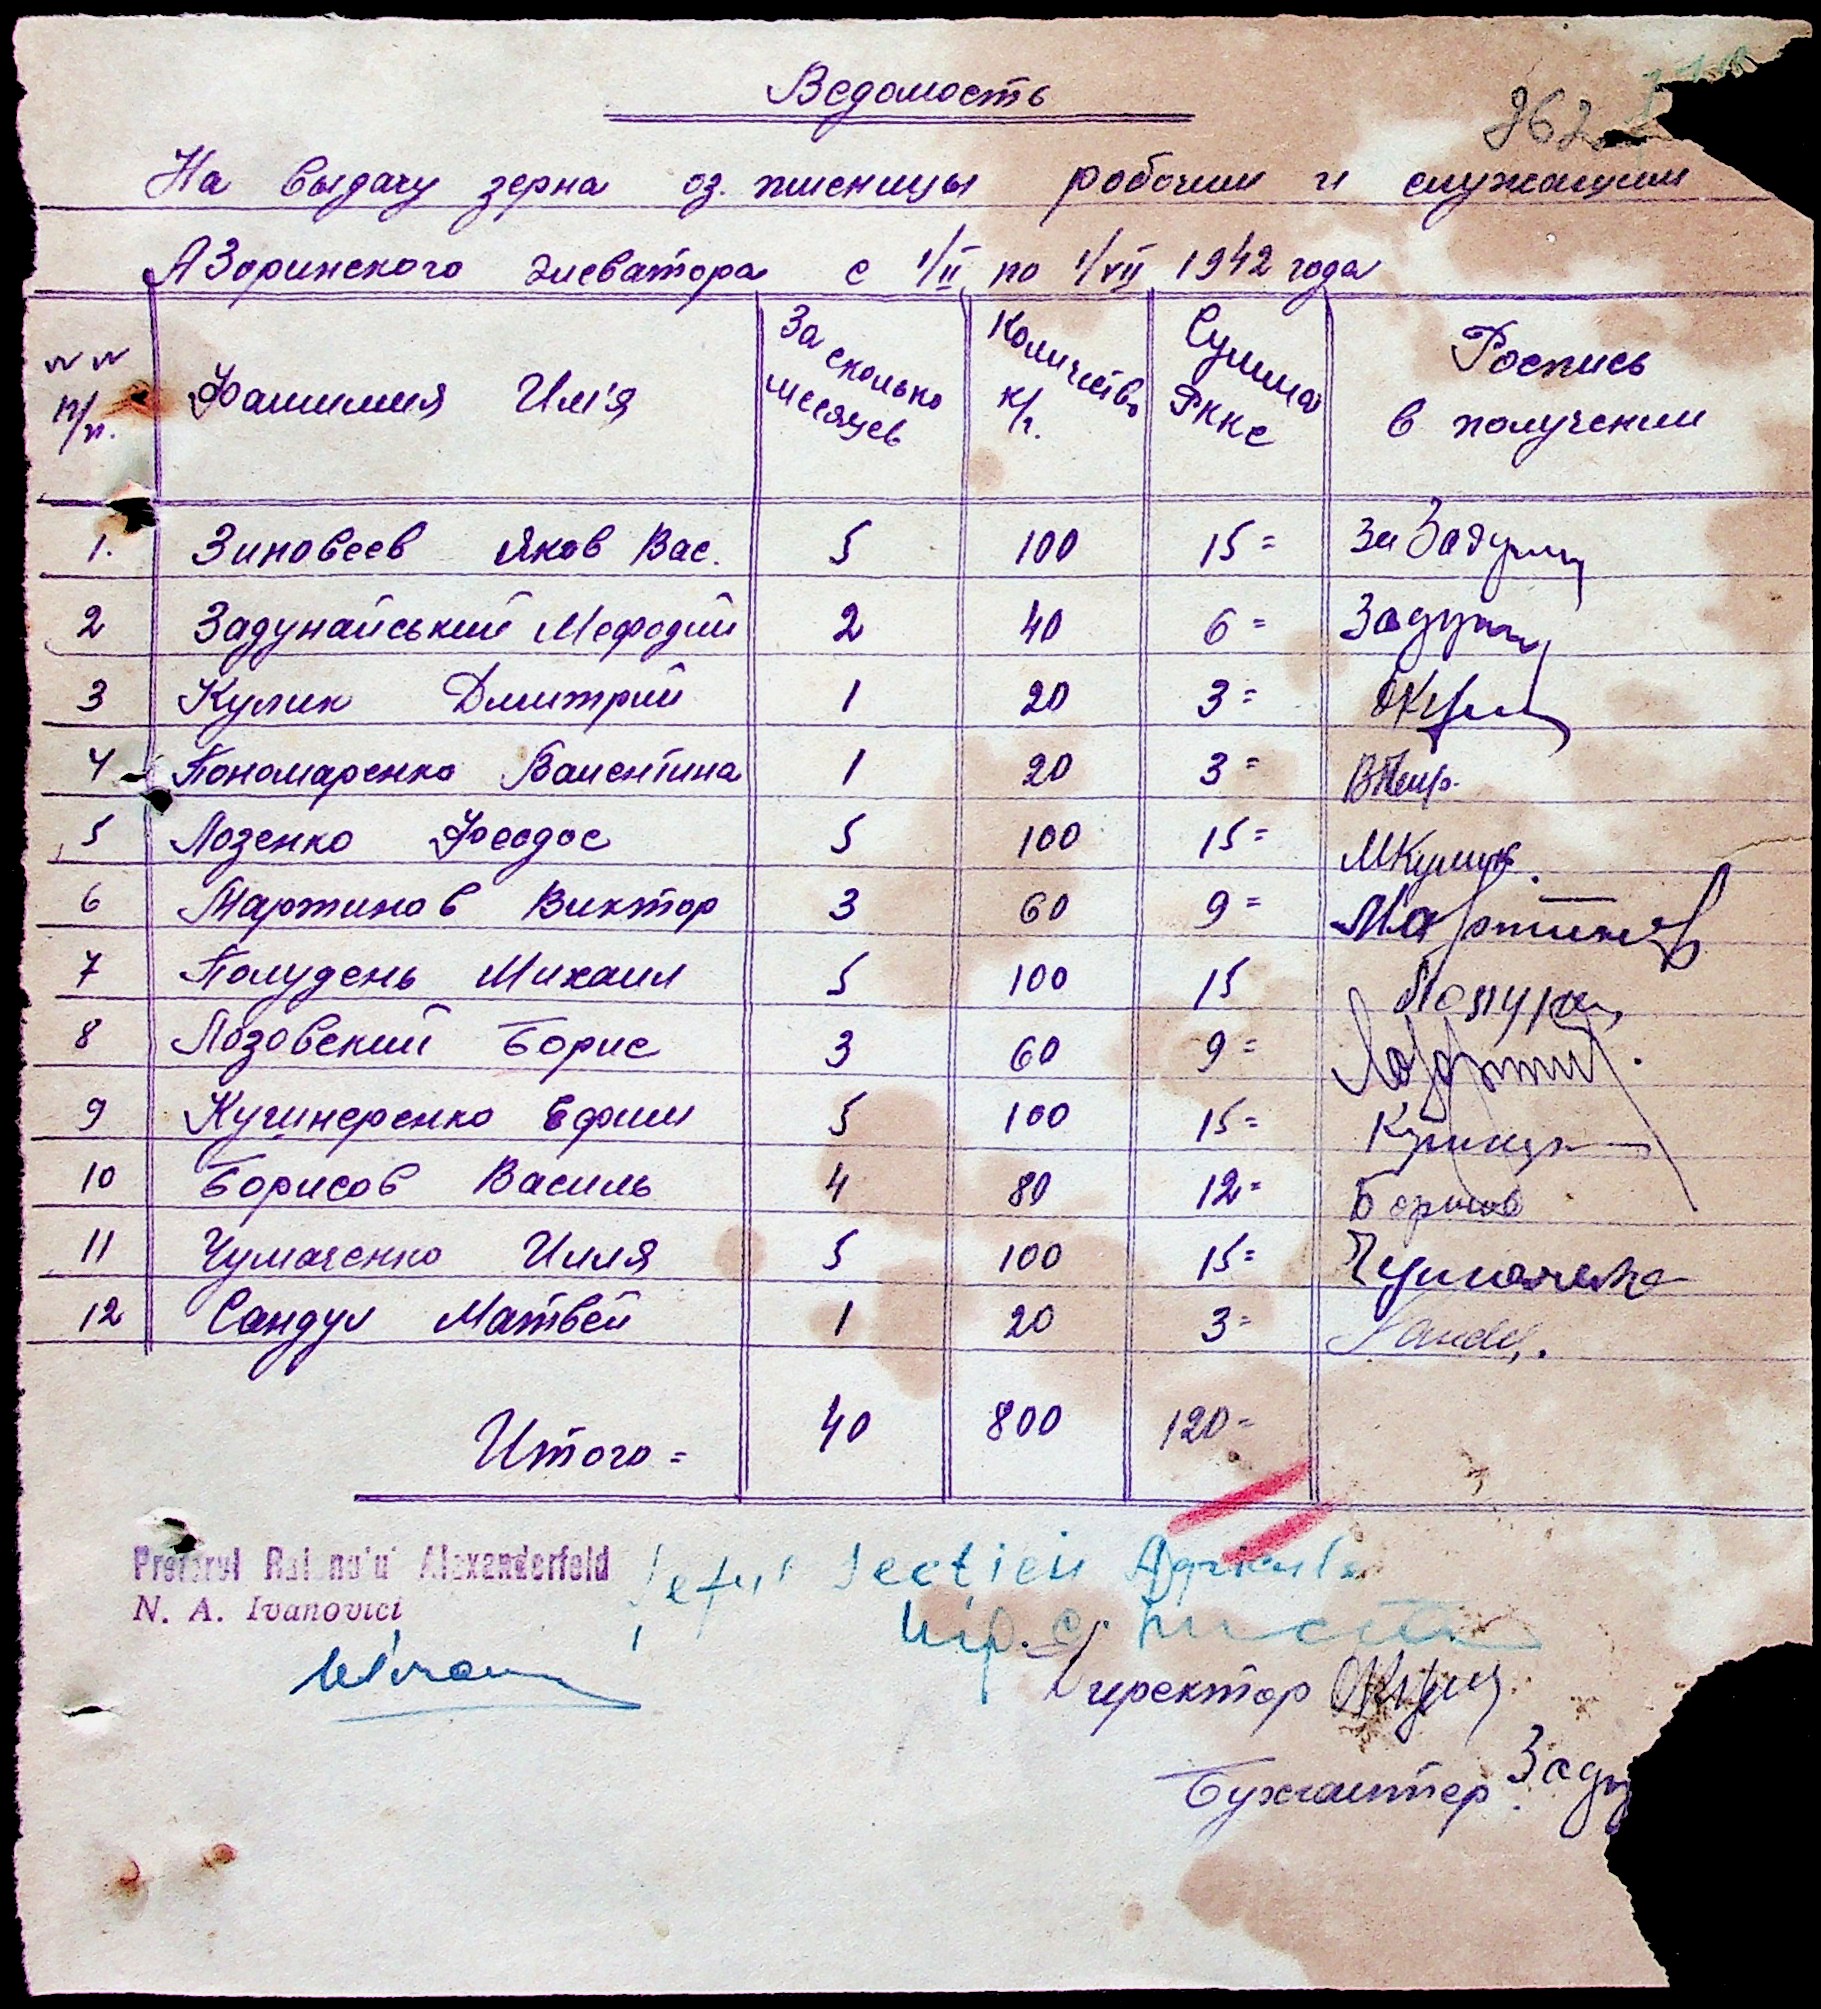 Ведомость
362
На выдачу зерна оз. пшеницы робочим и служащим
АЗаринского элеватора с 1/II по 1/VII 1942 года
NN п/п. Фамилия Им'я За сколько месяцев Количество к/г. Сумма РККС Роспись в получении
1. Зиновеев Яков Вас. 5 100 15= За Задун
2 Задунайський Мефодий 2 40 6= Задун
3 Кулик Дмитрий 1 20 3=
4 Пономаренко Валентина 1 20 3=
5 Лозенко Феодос 5 100 15= МКулик.
6 Мартинов Виктор 3 60 9= Мартинов
7 Полудень Михаил 5 100 15 Полуд
8 Лозовский Борис 3 60 9=
9 Кучинеренко Ефим 5 100 15=
10 Борисов Василь 4 80 12= Борисов
11 Чумаченко Илля 5 100 15= Чумаченко
12 Сандул Матвей 1 20 3= Sandul.
Итого= 40 800 120=
Pretorul Raionului Alexanderfeld
N. A. Ivanovici
Șeful Secției Agricole
Директор
Бухгалтер Заду